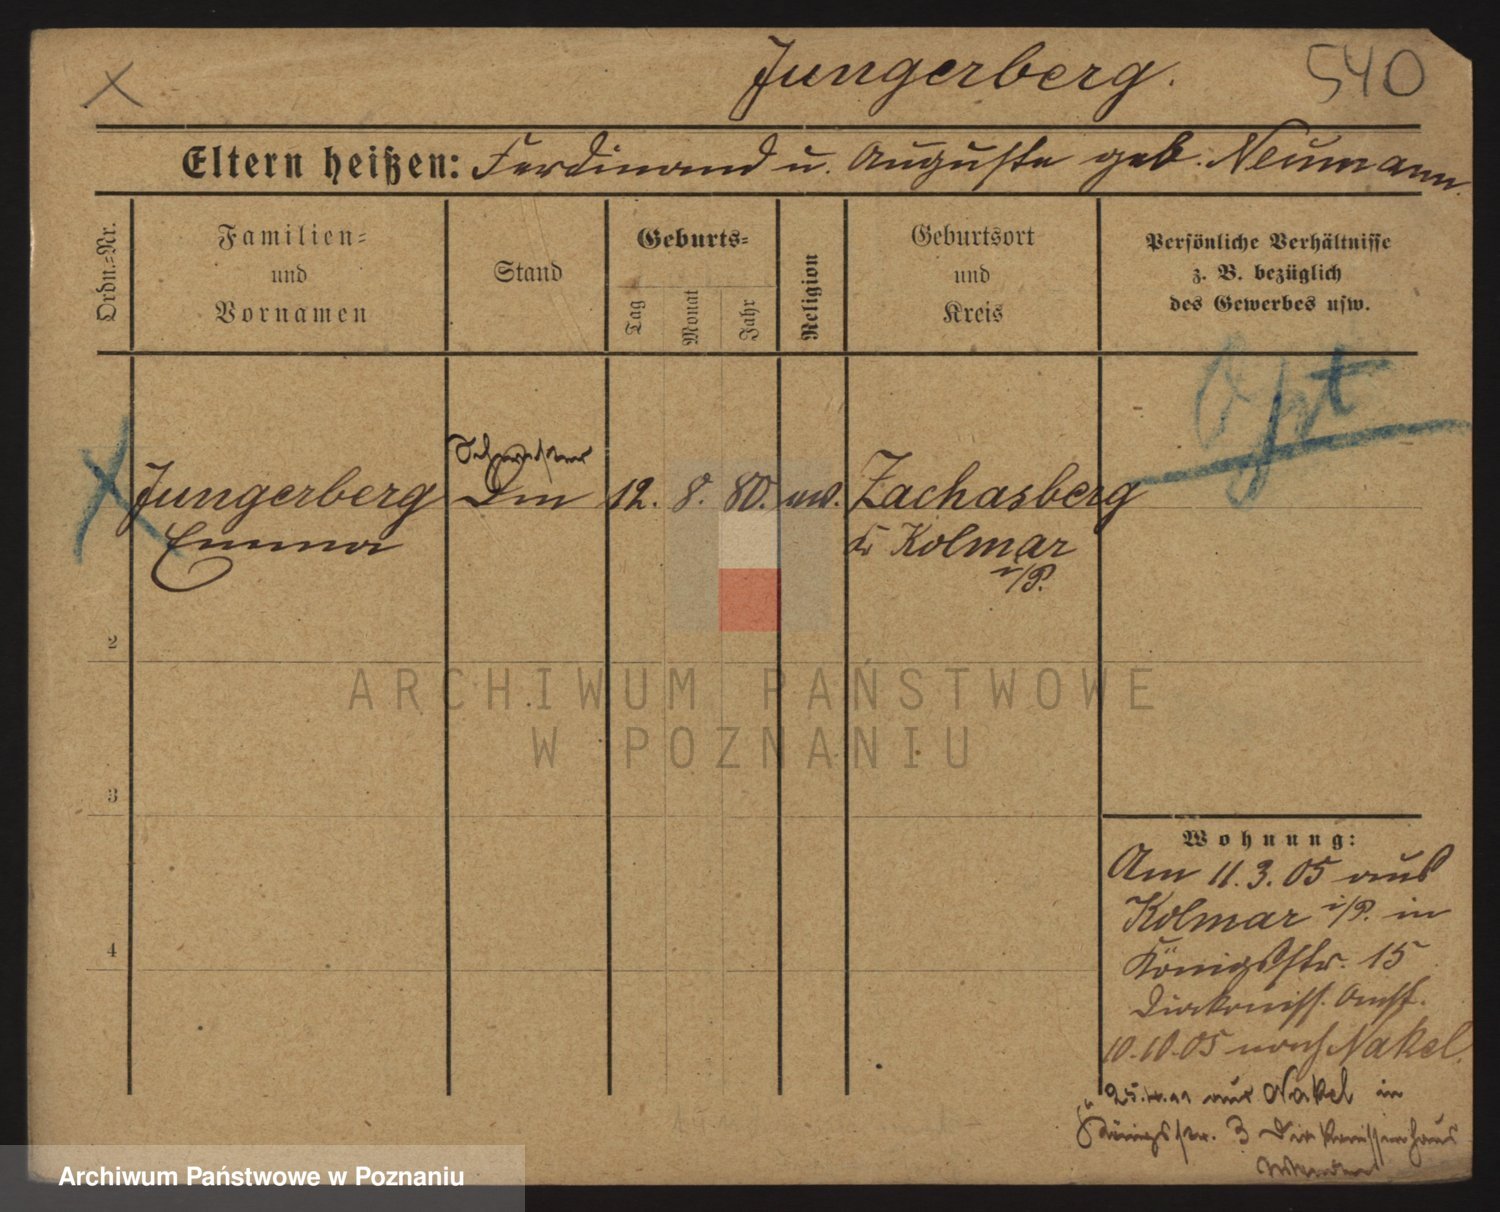 Jungerberg.
540
Eltern heißen: Ferdinand u. Auguste geb. Neumann.
Ordn.=Nr.
Familien=
und
Vornamen
Stand
Geburts=
Tag
Monat
Jahr
Religion
Geburtsort
und
Kreis
Persönliche Verhältnisse
z. B. bezüglich
des Gewerbes usw.
Opt
Schwester
Jungerberg
Emma
12. 8. 80. ev.
Zachasberg
Kr Kolmar
i/P.
2
3
4
Wohnung:
Am 11.3.05 aus
Kolmar i/P. in
Königsstr. 15
Diakoniss. Anst.
10.10.05 nach Nakel.
aus Nakel in
Königsstr. 3 Diakonissenhaus
ARCHIWUM PAŃSTWOWE
W POZNANIU
Archiwum Państwowe w Poznaniu